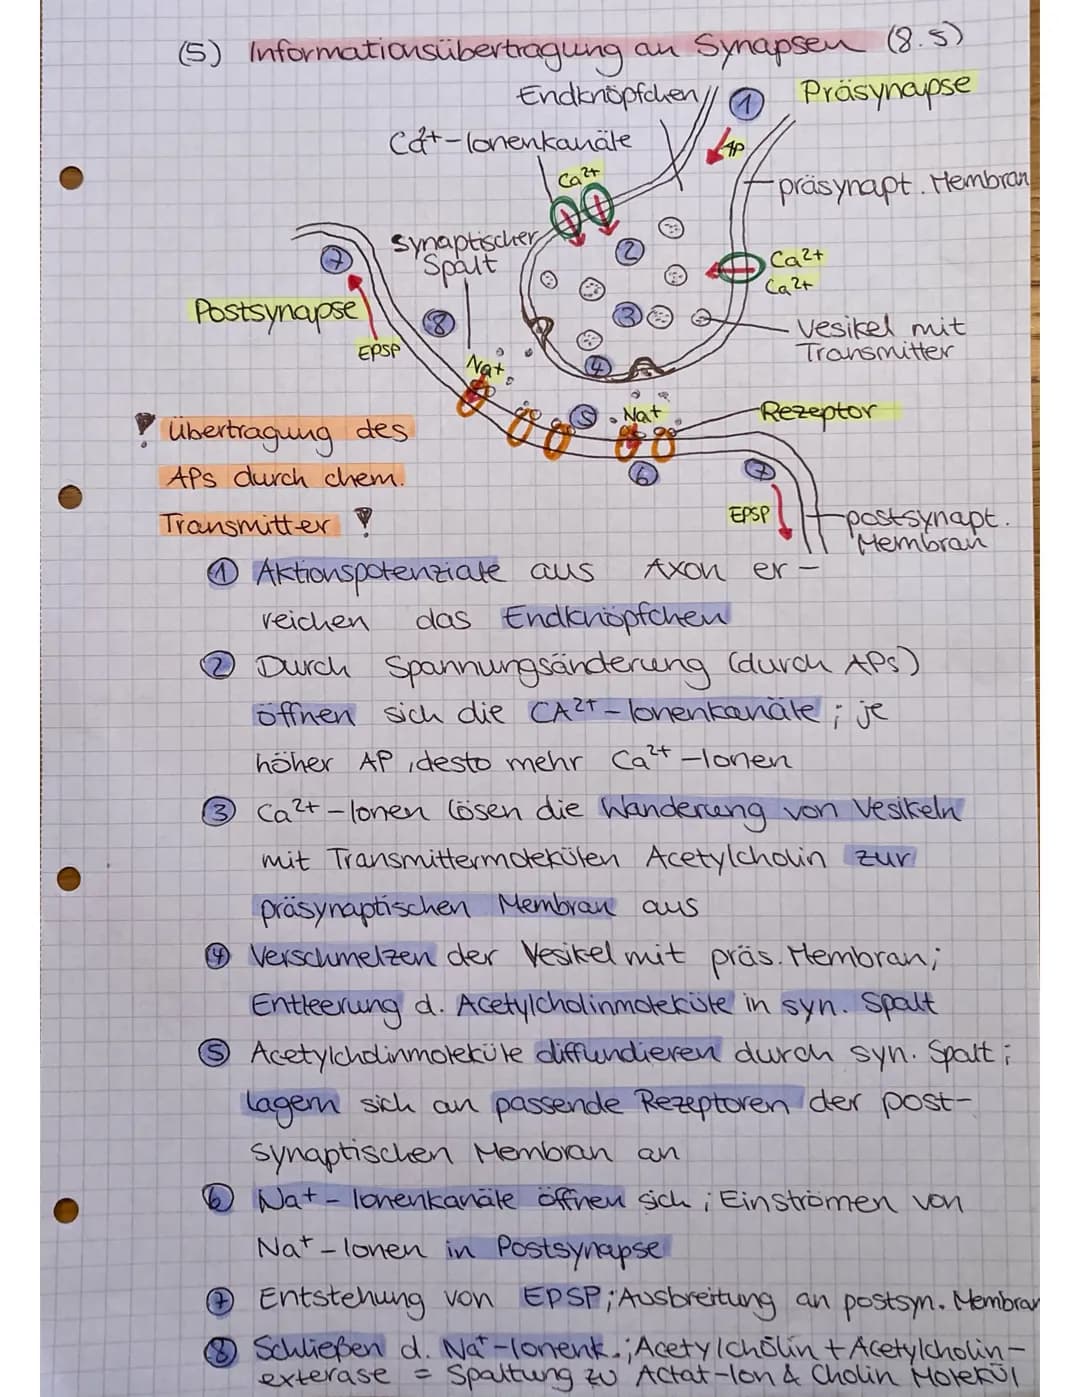 (5) Informationsübertragung an Synapsen (8.5)
Endknöpfchen
1
Präsynapse
Ca²⁺-Ionenkanäle
AP
Ca²⁺
präsynapt. Membran
synaptischer
Spalt
2
7
Ca²⁺
Ca²⁺
Postsynapse
8
3
Vesikel mit
Transmitter
EPSP
Na⁺
4
5
Na⁺
Rezeptor
! Übertragung des
APs durch chem.
Transmitter !
6
7
EPSP
postsynapt.
Membran
① Aktionspotenziale aus Axon er-
reichen das Endknöpfchen
② Durch Spannungsänderung (durch APs)
öffnen sich die CA²⁺-Ionenkanäle; je
höher AP, desto mehr Ca²⁺-Ionen
③ Ca²⁺-Ionen lösen die Wanderung von Vesikeln
mit Transmittermolekülen Acetylcholin zur
präsynaptischen Membran aus
④ Verschmelzen der Vesikel mit präs. Membran;
Entleerung d. Acetylcholinmoleküle in syn. Spalt
⑤ Acetylcholinmoleküle diffundieren durch syn. Spalt;
lagern sich an passende Rezeptoren der post-
synaptischen Membran an
⑥ Na⁺-Ionenkanäle öffnen sich; Einströmen von
Na⁺-Ionen in Postsynapse
⑦ Entstehung von EPSP; Ausbreitung an postsyn. Membran
⑧ Schließen d. Na⁺-Ionenk.; Acetylcholin + Acetylcholin-
exterase = Spaltung zu Actat-Ion & Cholin Molekül